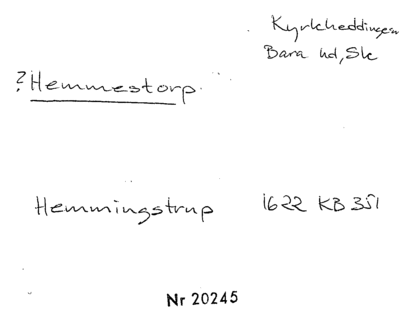 Kyrkheddinge sn
Bara hd, Sk
?Hemmestorp
Hemmingstrup 1622 KB 351
Nr 20245